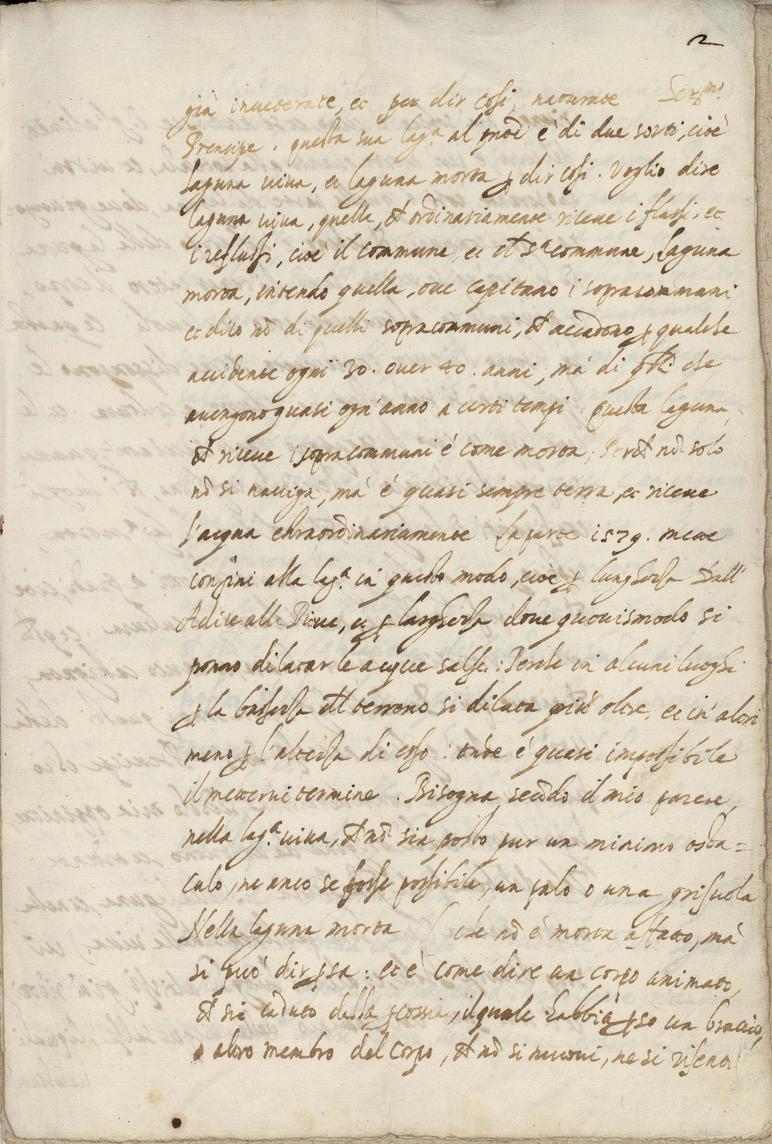 2
già inveterate, et per dir così, naturate Ser.mo
Prencipe. questa sua lag.a al pnte è di due sorti, cioè
laguna viva, et laguna morta p dir cosi. Voglio dire
laguna viva, quella, ch ordinariamente riceve i flussi, et
i reflussi, cioè il commune, et il commune, laguna
morta, intendo quella, ove capitano i sopracommuni
et dico nō di quelli sopracomuni, ch accadono p qualche
accidente ogni 30. over 40. anni, mà di che
avengono quasi ogn'anno a certi tempi. Questa laguna,
ch riceve i sopracommuni è come morta; Perch nō solo
nō si naviga, mà è quasi sempre terra, et riceve
l'acqua extraordinariamente. La parte 1579. mette
confini alla lag.a in questo modo, cioè p lunghezza dall'
Adice alla Piave, et p larghezza dove quovismodo si
ponno dilatar le acque salse: Perche in alcuni luoghi
p la bassezza dl terreno si dilata più oltre, et in altri
meno p l'altezza di esso: onde è quasi impossibile
il mettervi termine. Bisogna, secōdo il mio parere,
nella lag.a viva, ch nō sia posto pur un minimo osta=
culo, ne anco se fosse possibile, un palo o una grisuola
Nella laguna morta (che nō è morta affatto, mà
si può dir psa: et è come dire un corpo animato,
ch sia caduto dalla, il quale habbia pso un braccio,
o altro membro del corpo, ch nō si muovi, ne si